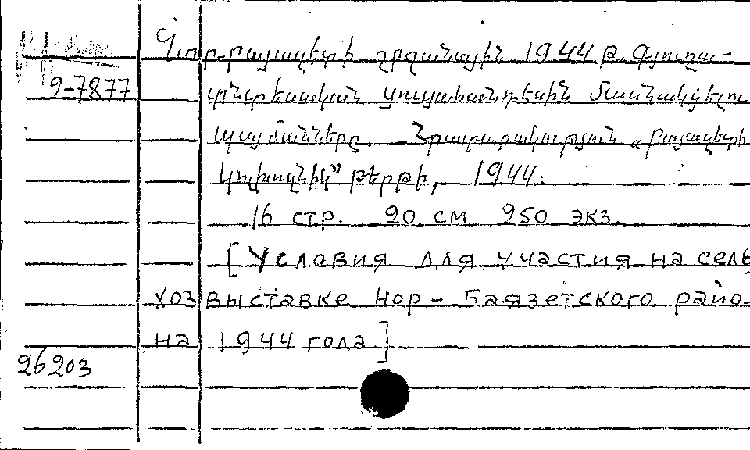 9-7877
Նոր-Բայազետի շրջանային 1944 թ. Գյուղա-
տնտեսական ցուցահանդեսին մասնակցելու
պայմանները. Հրատարակություն „Բայազետի
կոլխոզնիկ” թերթի, 1944.
16 стр. 20 см 250 экз.
[Условия для участия на сель
хоз выставке Нор-Баязетского райо-
на 1944 года]
26203